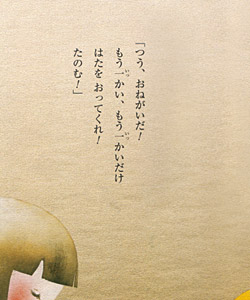 「つう、おねがいだ！
もう一かい、もう一かいだけ
はたを おってくれ！
たのむ！」